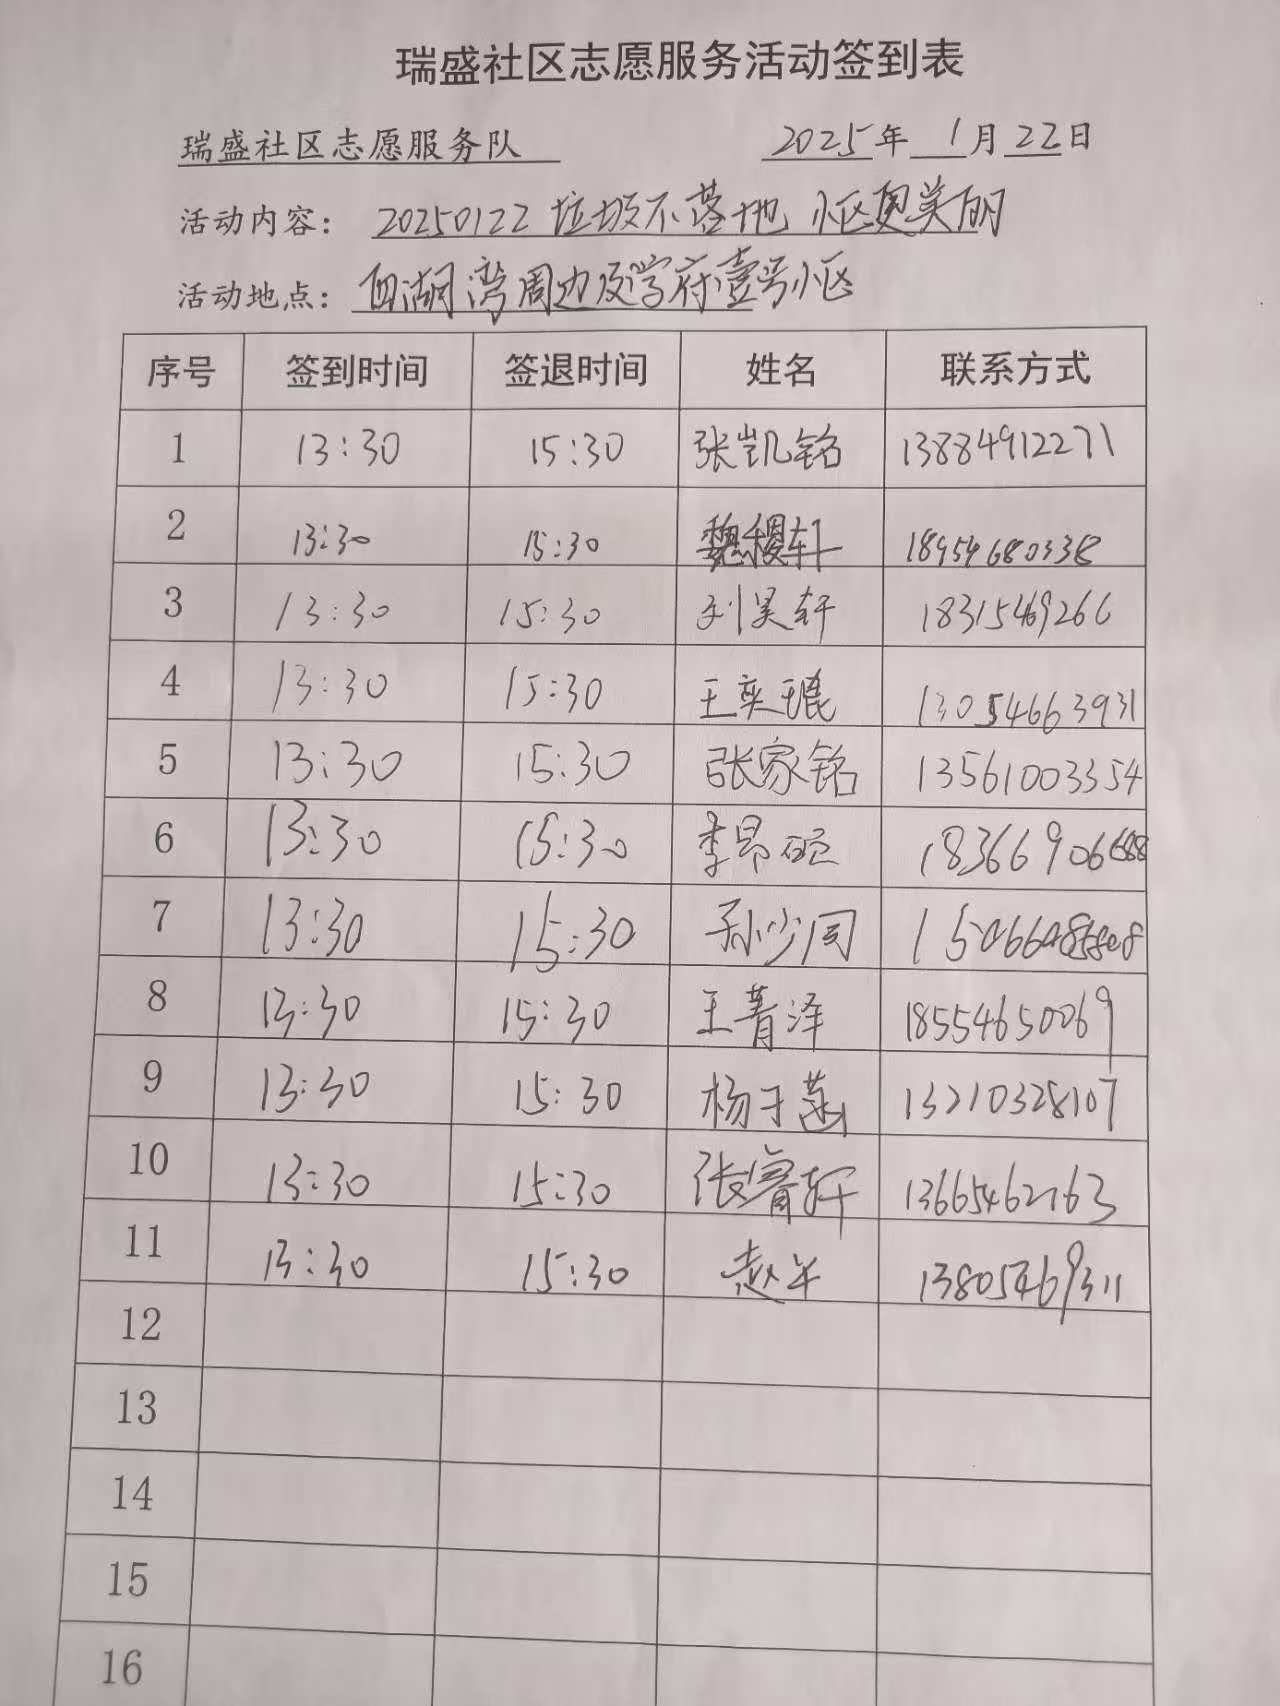 瑞盛社区志愿服务活动签到表
瑞盛社区志愿服务队 2025年 1月22日
活动内容: 20250122 垃圾不落地 小区更美丽
活动地点: 湖湾周边及学府壹号小区
序号 签到时间 签退时间 姓名 联系方式
1 13:30 15:30 张凯铭 13884912271
2 13:30 15:30 魏稷轩 18954680338
3 13:30 15:30 刘昊轩 18315469266
4 13:30 15:30 王奕琨 13054663931
5 13:30 15:30 张家铭 13561003354
6 13:30 15:30 李昂硕
7 13:30 15:30 孙少同
8 13:30 15:30 王菁泽 18554650069
9 13:30 15:30 杨于菡 13210328107
10 13:30 15:30 张睿轩 13665462763
11 13:30 15:30 13805469311
12
13
14
15
16